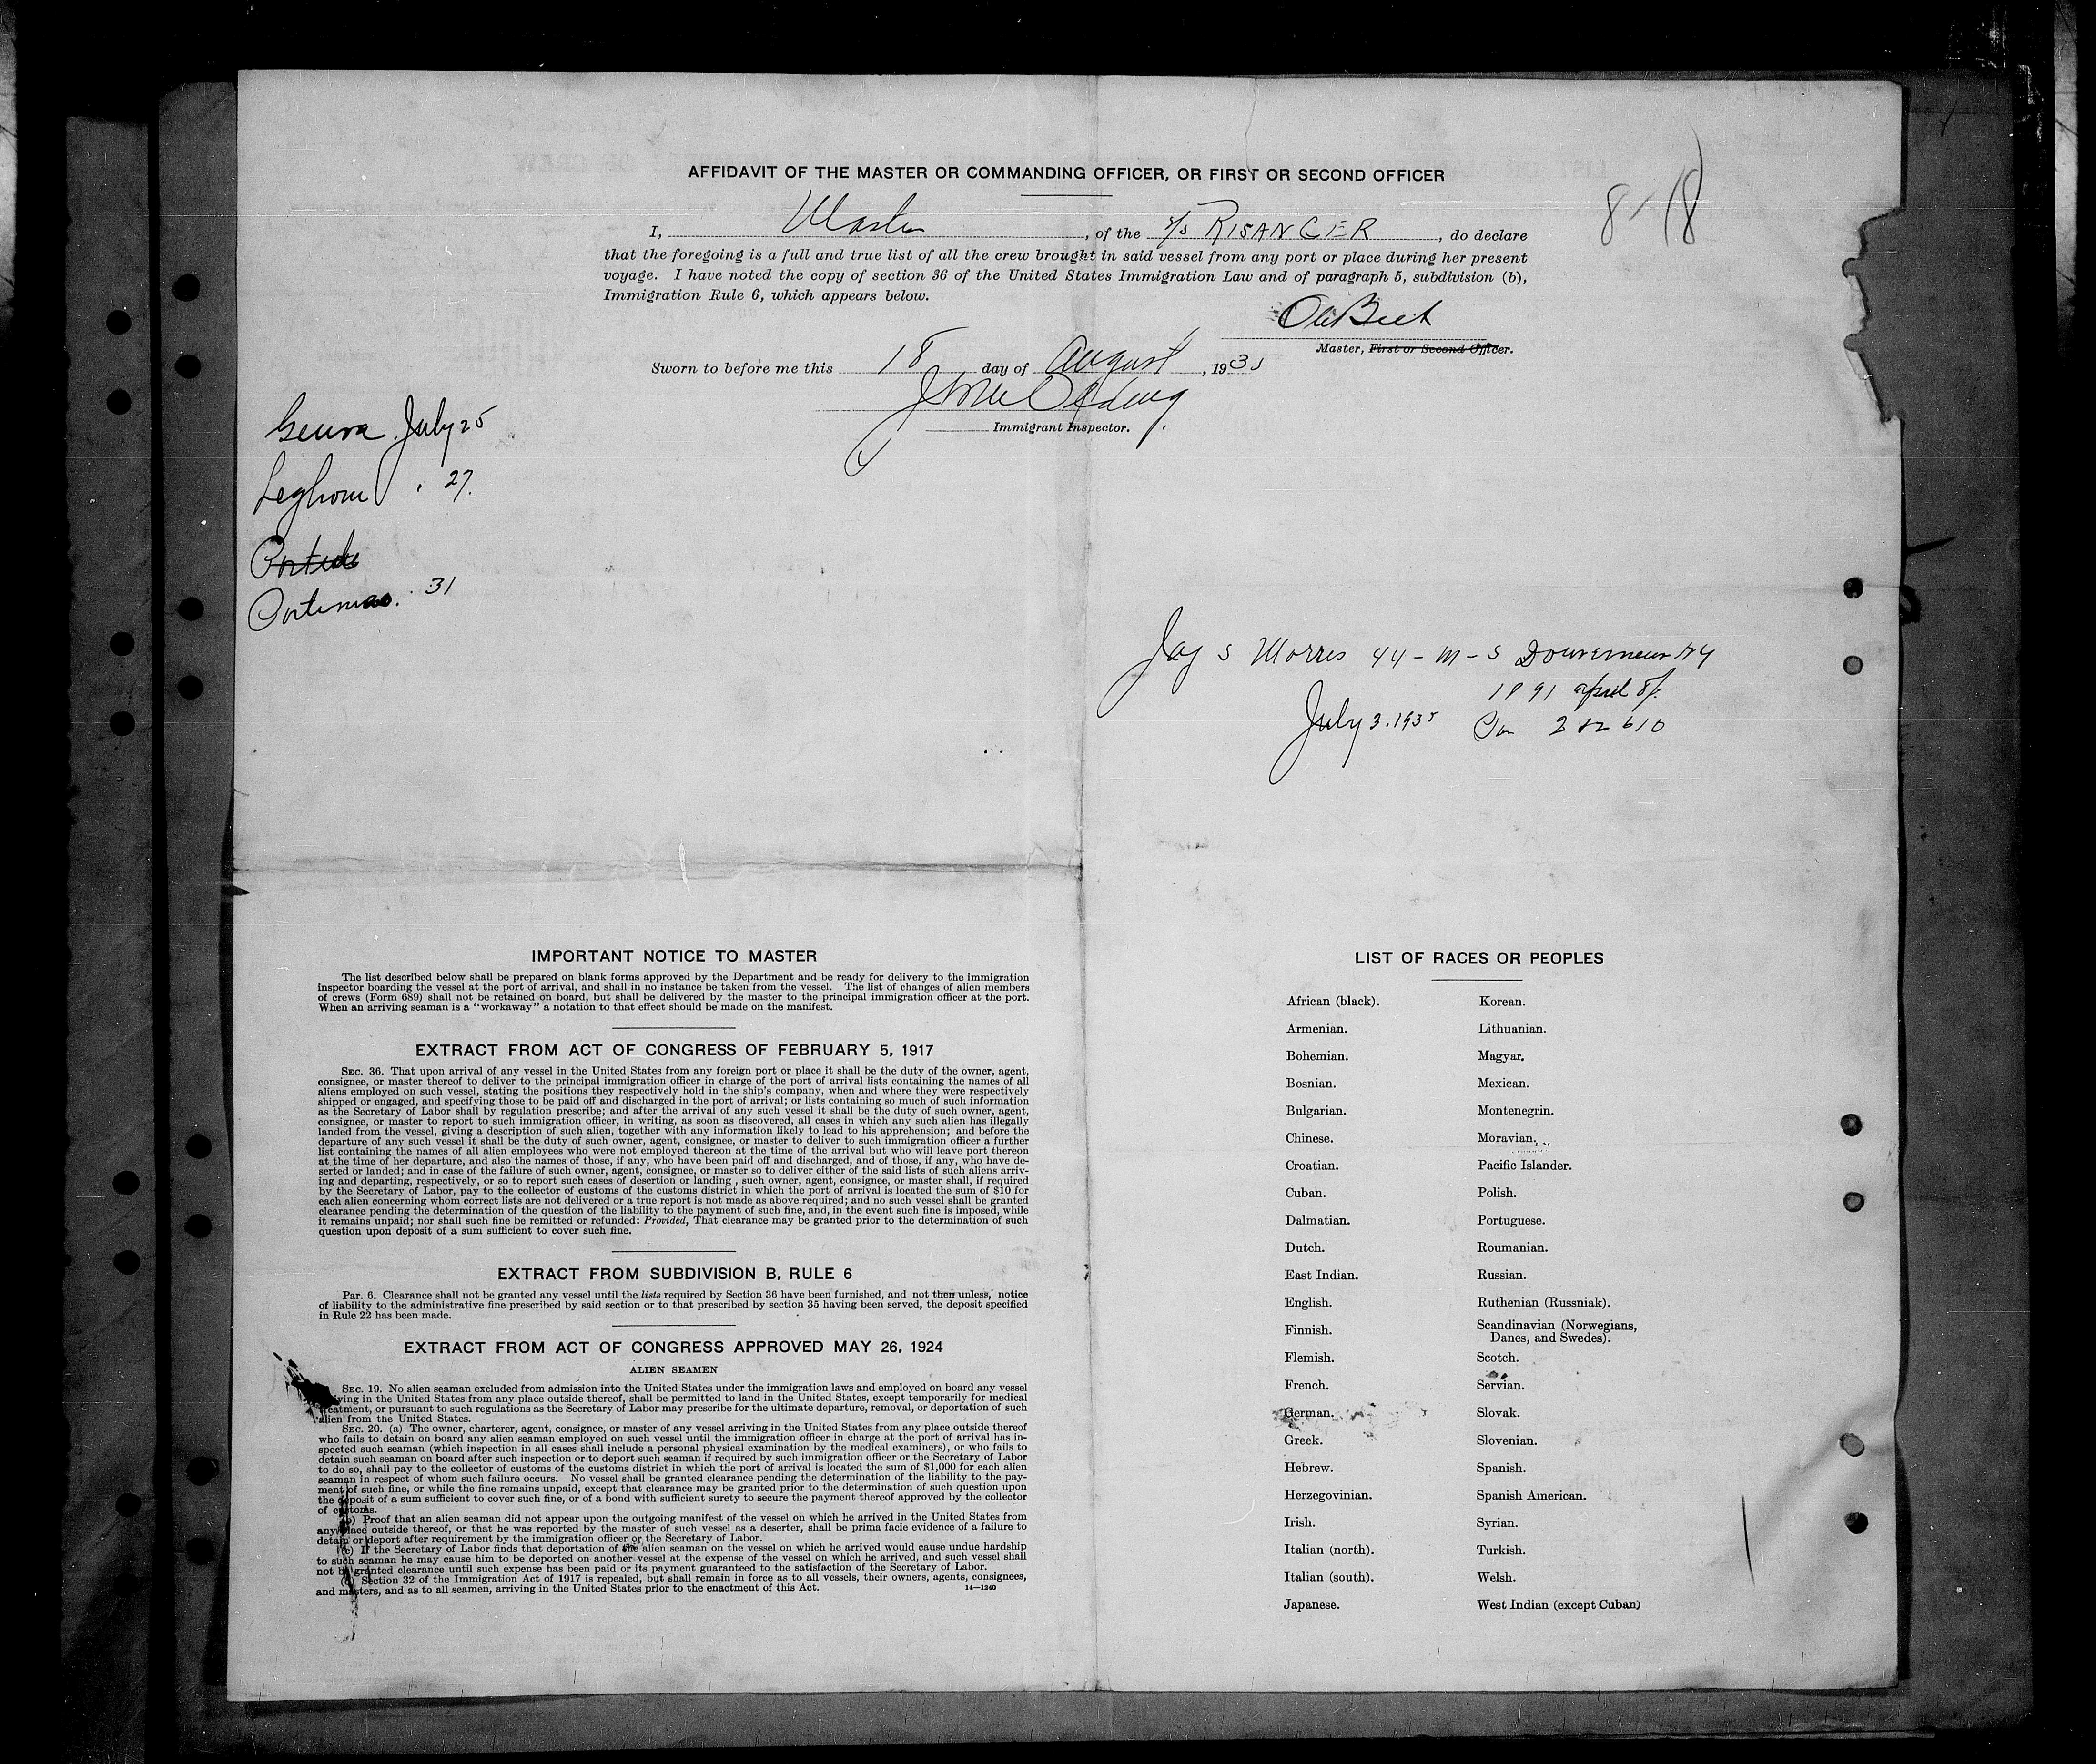 AFFIDAVIT OF THE MASTER OR COMMANDING OFFICER, OR FIRST OR SECOND OFFICER
8-18
I, Master, of the S/S RISANGER, do declare
that the foregoing is a full and true list of all the crew brought in said vessel from any port or place during her present
voyage. I have noted the copy of section 36 of the United States Immigration Law and of paragraph 5, subdivision (b),
Immigration Rule 6, which appears below.
Master, First or Second Officer.
Sworn to before me this 18 day of August, 193
Immigrant Inspector.
Genoa July 25
Leghorn " 27.
31
Jay S Morris 44-M-S Gouverneur NY
1891 april 8
July 3. 1935
IMPORTANT NOTICE TO MASTER
The list described below shall be prepared on blank forms approved by the Department and be ready for delivery to the immigration
inspector boarding the vessel at the port of arrival, and shall in no instance be taken from the vessel. The list of changes of alien members
of crews (Form 689) shall not be retained on board, but shall be delivered by the master to the principal immigration officer at the port.
When an arriving seaman is a "workaway" a notation to that effect should be made on the manifest.
EXTRACT FROM ACT OF CONGRESS OF FEBRUARY 5, 1917
SEC. 36. That upon arrival of any vessel in the United States from any foreign port or place it shall be the duty of the owner, agent,
consignee, or master thereof to deliver to the principal immigration officer in charge of the port of arrival lists containing the names of all
aliens employed on such vessel, stating the positions they respectively hold in the ship's company, when and where they were respectively
shipped or engaged, and specifying those to be paid off and discharged in the port of arrival; or lists containing so much of such information
as the Secretary of Labor shall by regulation prescribe; and after the arrival of any such vessel it shall be the duty of such owner, agent,
consignee, or master to report to such immigration officer, in writing, as soon as discovered, all cases in which any such alien has illegally
landed from the vessel, giving a description of such alien, together with any information likely to lead to his apprehension; and before the
departure of any such vessel it shall be the duty of such owner, agent, consignee, or master to deliver to such immigration officer a further
list containing the names of all alien employees who were not employed thereon at the time of the arrival but who will leave port thereon
at the time of her departure, and also the names of those, if any, who have been paid off and discharged, and of those, if any, who have de-
serted or landed; and in case of the failure of such owner, agent, consignee, or master so to deliver either of the said lists of such aliens arriv-
ing and departing, respectively, or so to report such cases of desertion or landing, such owner, agent, consignee, or master shall, if required
by the Secretary of Labor, pay to the collector of customs of the customs district in which the port of arrival is located the sum of $10 for
each alien concerning whom correct lists are not delivered or a true report is not made as above required; and no such vessel shall be granted
clearance pending the determination of the question of the liability to the payment of such fine, and, in the event such fine is imposed, while
it remains unpaid; nor shall such fine be remitted or refunded: Provided, That clearance may be granted prior to the determination of such
question upon deposit of a sum sufficient to cover such fine.
EXTRACT FROM SUBDIVISION B, RULE 6
Par. 6. Clearance shall not be granted any vessel until the lists required by Section 36 have been furnished, and not then unless, notice
of liability to the administrative fine prescribed by said section or to that prescribed by section 35 having been served, the deposit specified
in Rule 22 has been made.
EXTRACT FROM ACT OF CONGRESS APPROVED MAY 26, 1924
ALIEN SEAMEN
SEC. 19. No alien seaman excluded from admission into the United States under the immigration laws and employed on board any vessel
arriving in the United States from any place outside thereof, shall be permitted to land in the United States, except temporarily for medical
treatment, or pursuant to such regulations as the Secretary of Labor may prescribe for the ultimate departure, removal, or deportation of such
alien from the United States.
SEC. 20. (a) The owner, charterer, agent, consignee, or master of any vessel arriving in the United States from any place outside thereof
who fails to detain on board any alien seaman employed on such vessel until the immigration officer in charge at the port of arrival has in-
spected such seaman (which inspection in all cases shall include a personal physical examination by the medical examiners), or who fails to
detain such seaman on board after such inspection or to deport such seaman if required by such immigration officer or the Secretary of Labor
to do so, shall pay to the collector of customs of the customs district in which the port of arrival is located the sum of $1,000 for each alien
seaman in respect of whom such failure occurs. No vessel shall be granted clearance pending the determination of the liability to the pay-
ment of such fine, or while the fine remains unpaid, except that clearance may be granted prior to the determination of such question upon
the deposit of a sum sufficient to cover such fine, or of a bond with sufficient surety to secure the payment thereof approved by the collector
of customs.
(b) Proof that an alien seaman did not appear upon the outgoing manifest of the vessel on which he arrived in the United States from
any place outside thereof, or that he was reported by the master of such vessel as a deserter, shall be prima facie evidence of a failure to
detain or deport after requirement by the immigration officer or the Secretary of Labor.
(c) If the Secretary of Labor finds that deportation of the alien seaman on the vessel on which he arrived would cause undue hardship
to such seaman he may cause him to be deported on another vessel at the expense of the vessel on which he arrived, and such vessel shall
not be granted clearance until such expense has been paid or its payment guaranteed to the satisfaction of the Secretary of Labor.
(d) Section 32 of the Immigration Act of 1917 is repealed, but shall remain in force as to all vessels, their owners, agents, consignees,
and masters, and as to all seamen, arriving in the United States prior to the enactment of this Act.
14—1240
LIST OF RACES OR PEOPLES
African (black).
Armenian.
Bohemian.
Bosnian.
Bulgarian.
Chinese.
Croatian.
Cuban.
Dalmatian.
Dutch.
East Indian.
English.
Finnish.
Flemish.
French.
German.
Greek.
Hebrew.
Herzegovinian.
Irish.
Italian (north).
Italian (south).
Japanese.
Korean.
Lithuanian.
Magyar.
Mexican.
Montenegrin.
Moravian.
Pacific Islander.
Polish.
Portuguese.
Roumanian.
Russian.
Ruthenian (Russniak).
Scandinavian (Norwegians,
Danes, and Swedes).
Scotch.
Servian.
Slovak.
Slovenian.
Spanish.
Spanish American.
Syrian.
Turkish.
Welsh.
West Indian (except Cuban)